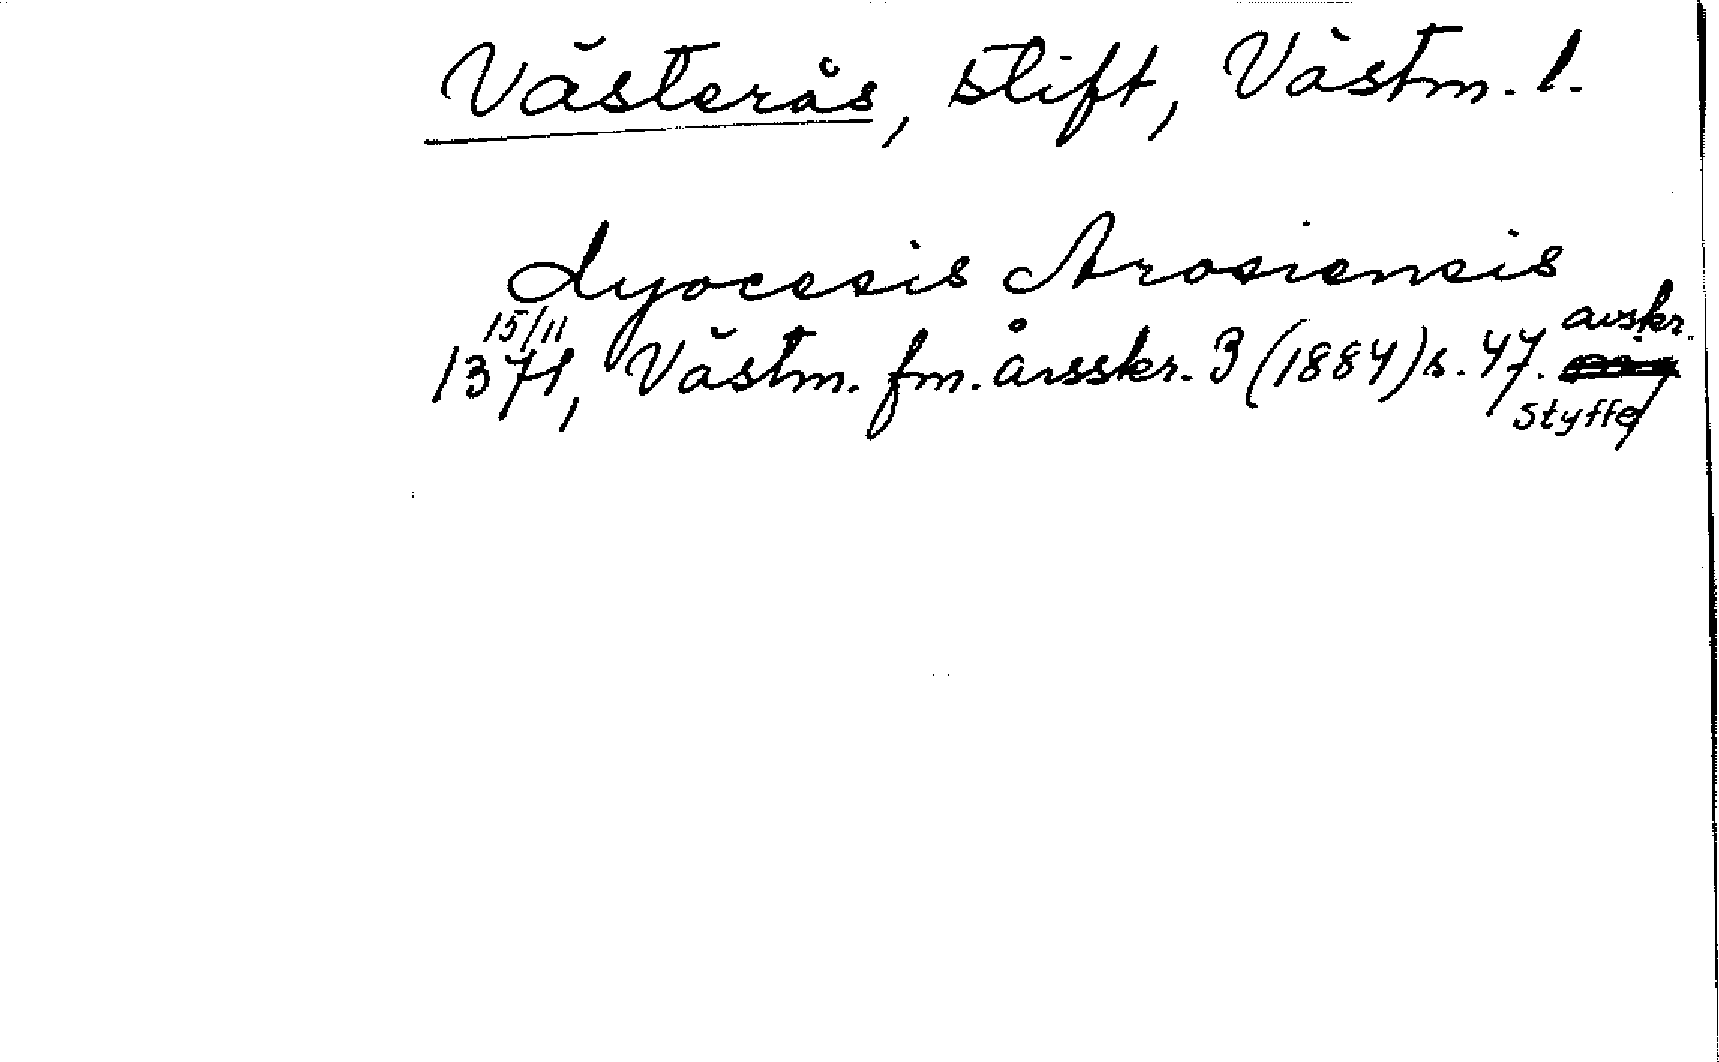 Västerås, stift, Västm. l.
dyocesis Arosiensis
15/11
1371, Västm. fm. årsskr. 3 (1884) s. 47. avskr.
Styffe